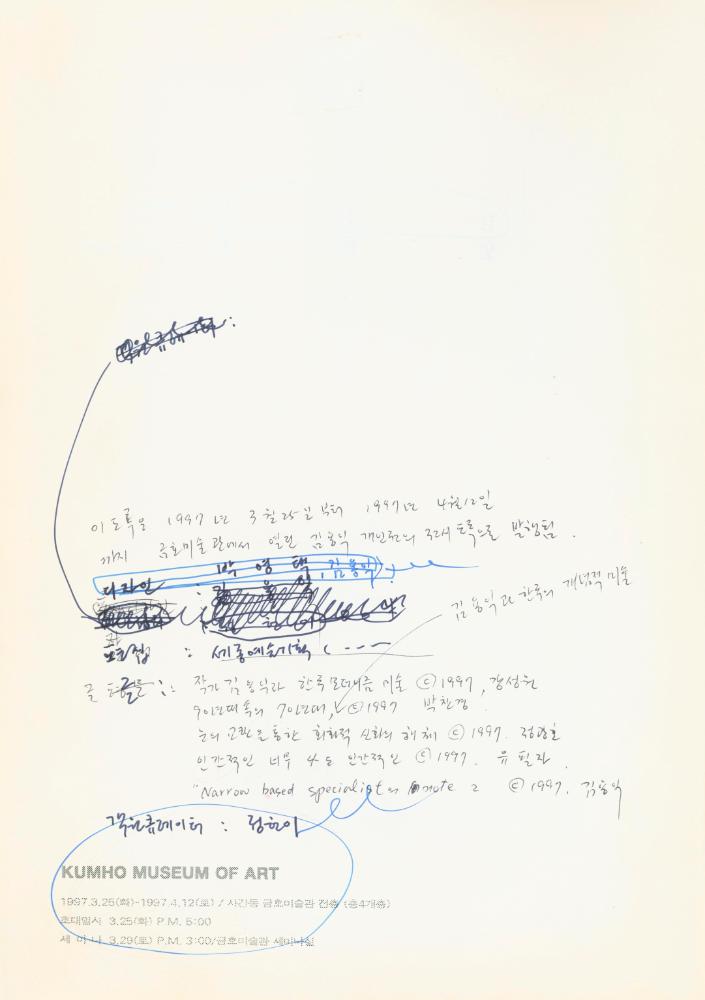 이 도록은 1997년 3월 25일부터 1997년 4월 12일
까지 금호미술관에서 열린 김용익 개인전의 도록으로 발행됨.
박영택, 김용익
디자인 :
편집 : 세종예술기획 (----
김용익과 한국의 개념적 미술
글 : 작가 김용익과 한국 모더니즘 미술 ⓒ 1997, 강성원
90년대 속의 70년대, ⓒ 1997 박찬경
눈의 교환을 통한 회화적 신화의 해체 ⓒ 1997.
인간적인 너무나도 인간적인 ⓒ 1997. 유필자
"Narrow based specialist note 2 ⓒ 1997. 김용익
큐레이터 : 정현이
KUMHO MUSEUM OF ART
1997.3.25(화)-1997.4.12(토) / 사간동 금호미술관 전층 (총4개층)
초대일시 3.25(화) P.M. 5:00
세 미 나 3.29(토) P.M. 3:00/금호미술관 세미나실